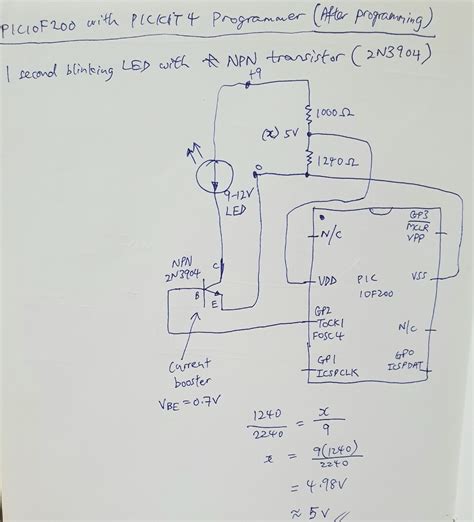 PIC10F200 with PICKIT4 Programmer (After programming)
1 second blinking LED with NPN transistor (2N3904)
+9
1000Ω
(x) 5V
1240Ω
0
9-12V
LED
GP3
MCLR
VPP
N/C
NPN
2N3904
C
B
E
VDD
PIC
10F200
VSS
GP2
TOCK1
FOSC4
N/C
GP1
ICSPCLK
GP0
ICSPDAT
Current
booster
VBE = 0.7V
1240/2240 = x/9
x = 9(1240)/2240
= 4.98V
≈ 5V